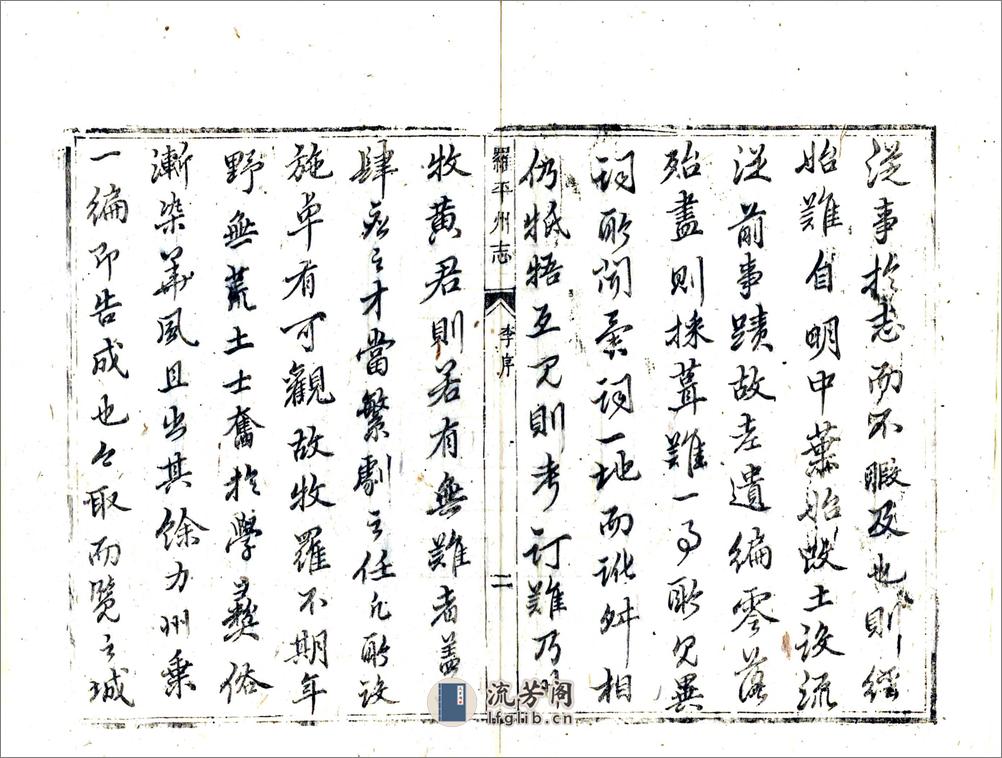 從事於志而不暇及也則經
始難自明中葉始改土設流
從前事蹟故老遺編零落
殆盡則採葺難一事所見異
詞所聞異詞一地而訛舛相
仍牴牾互見則考訂難乃
羅平州志 李序 二
牧黃君則若有無難者蓋
肆應之才當繁劇之任凡所設
施卓有可觀故牧羅不期年
野無荒土士奮於學彝俗
漸染華風且出其餘力州乗
一編即告成也々取而覽之城
流芳阁
lfglib.cn